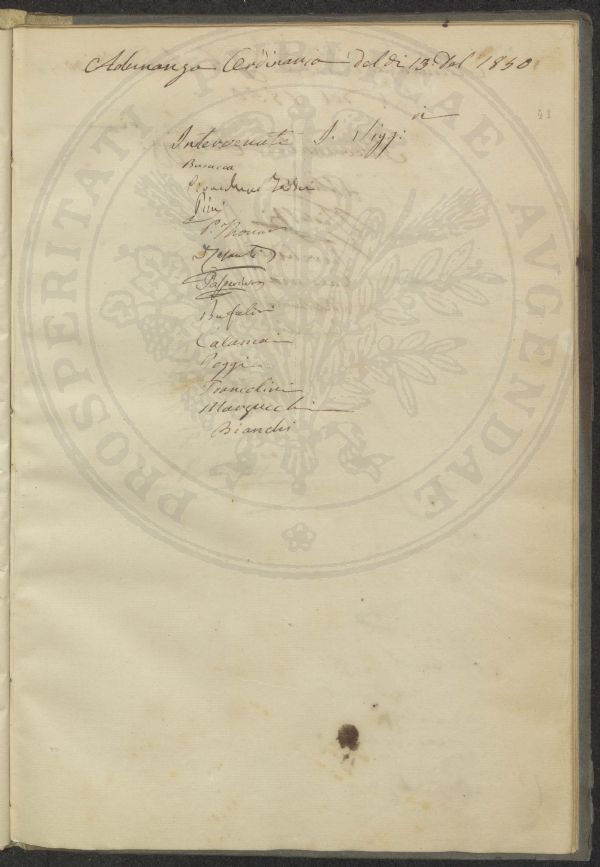 Adunanza Ordinaria del dì 13 1850
41
Intervenuti I. Sigg:ri
Baracca
Pini
P. Thouar
Bufalini
Calamai
Poggi
Francolini
Marzucchi
Bianchi
PROSPERITATI PUBLICAE AVGENDAE